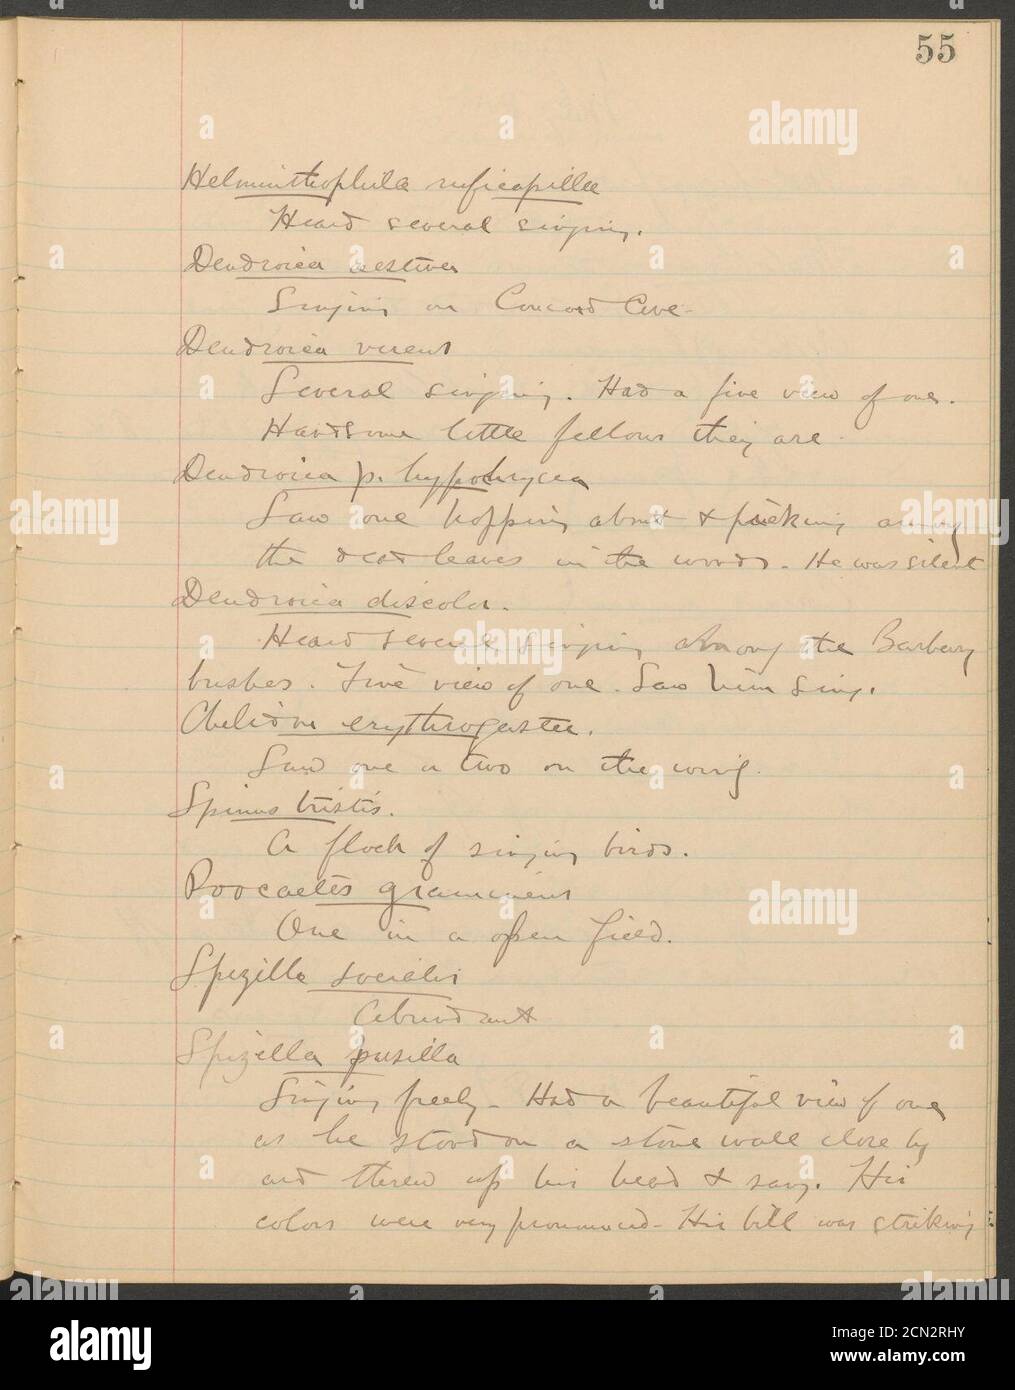 55
Helminthophila ruficapilla
Heard several singing.
Dendroica aestiva
Singing on Concord Ave.
Dendroica virens
Several singing. Had a fine view of one.
Handsome little fellows they are.
Dendroica p. hypochrysea
Saw one hopping about & picking among
the dead leaves in the woods. He was silent
Dendroica discolor.
Heard several singing among the Barberry
bushes. Fine view of one. Saw him sing.
Chelidon erythrogaster.
Saw one or two on the wing.
Spinus tristis.
A flock of singing birds.
Poocaetes gramineus
One in a open field.
Spizella socialis
Abundant
Spizella pusilla
Singing freely. Had a beautiful view of one
as he stood on a stone wall close by
and threw up his head & sang. His
colors were very pronounced. His bill was striking
alamy
Image ID: 2CN2RHY
www.alamy.com